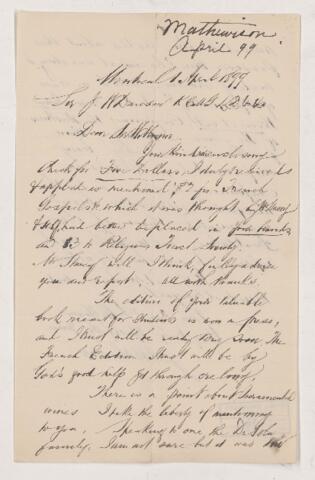 Mathewson
April 99
Montreal 1 April 1899
Sir J W Dawson
Dear Sir William
Your
check for Five Dollars, I duly received
& applied as mentioned $2 for French
Gospels & which it was thought
had better be placed in good hands
and $3 to Religious Tract Society.
Mr will I think, fully advise
you and report all with thanks.
The edition of your valuable
book meant for students is now in press,
and I trust will be ready very soon. The
French Edition I trust will be by
God's good help got through ere long.
There is a point about Sacramental
wines I take the liberty of mentioning
to you. Speaking to one the Dr
family, I am not sure but it was